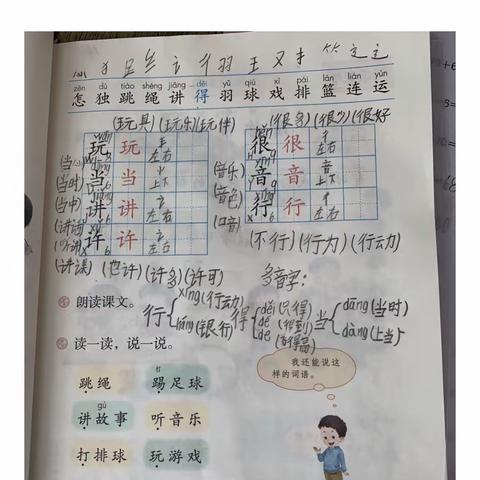 灬 犭 𧾷 纟 讠 彳 羽 王 又 扌 ⺮ 辶 辶
zěn dú tiào shéng jiǎng děi yǔ qiú xì pái lán lián yùn
怎 独 跳 绳 讲 得 羽 球 戏 排 篮 连 运
(玩具)(玩乐)(玩伴) (很多)(很少)(很好)
玩 玩 王 左右 很 很 彳 左右
当 当 上下 (音乐) 音 音 音 上下
(当时) (音色)
(当中) 讲 讲 讠 左右 (口音) 行 行 彳 左右
(讲话)
(听讲) 许 许 讠 左右
(讲课) (也许)(许多)(许可) (不行)(行为)(行动)
多音字:
朗读课文。
行 xíng(行动) háng(银行) 得 děi(只得) dé(得到) de 当 dāng(当时) dàng(上当)
读一读,说一说。
我还能说这
样的词语。
跳绳 踢足球
gù
讲故事 听音乐
打排球 玩游戏